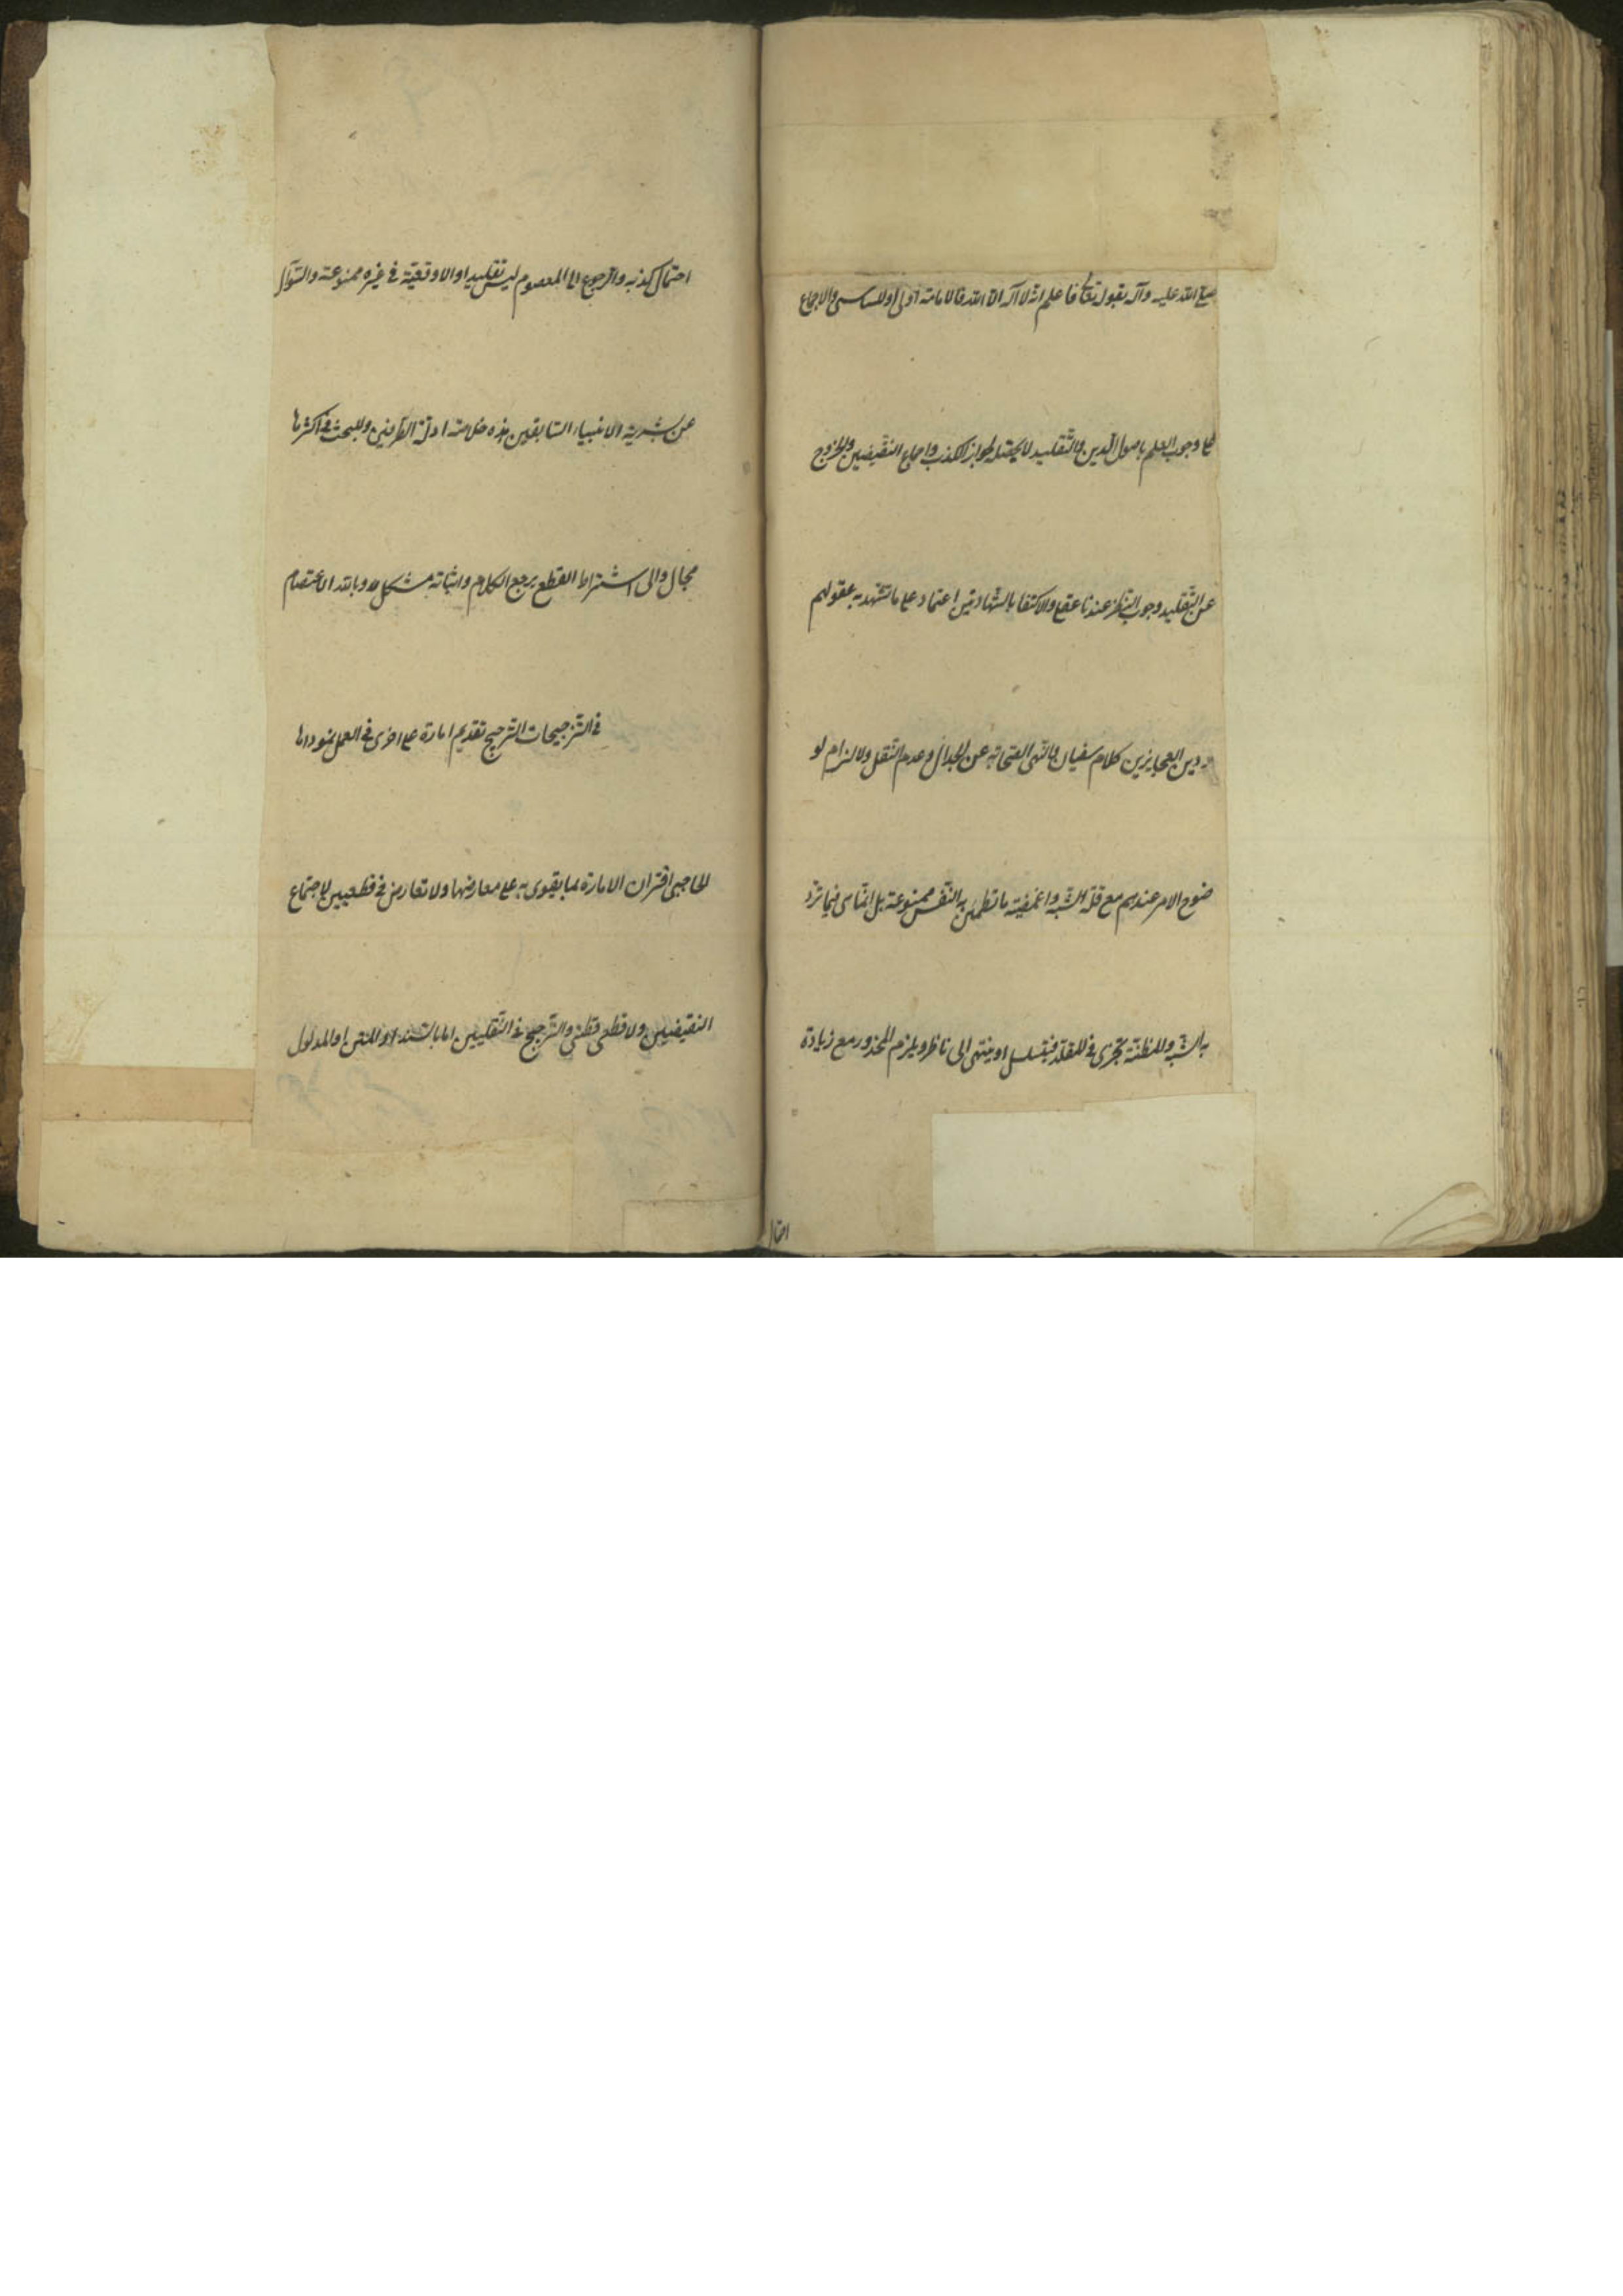 صلى الله عليه وآله بقوله تعالى فاعلم انه لا اله الا الله فالامامة اولى او للتأسى والاجماع
على وجوب العلم باصول الدين والتقليد لا يحصله لجواز الكذب واجماع النقيضين والخروج
عن التقليد وجوب النظر عندنا عقلى والاكتفا بالشهادتين اعتماد على ما تشهد به عقولهم
ودين العجايز من كلام سفيان والنهى الصحابة عن الجدال وعدم النقل والالزام لو
ضوح الامر عندهم مع قلة الشبه واغمضية ما تطمئن به النفس ممنوعة بل الناس فيما ترد
به الشبه والمظنة تجرى فى المقلد فيتسلسل او ينتهى الى ناظر ويلزم المحذور مع زيادة
احتمال
احتمال كذبه والرجوع الى المعصوم ليس تقليدا والاوقعية فى غيره ممنوعة والسؤال
عن بشرية الانبياء السابقين هذه خلاصة ادلة الطرفين وللبحث فى اكثرها
مجال والى اشتراط القطع يرجع الكلام واثباته مشكل وبالله الاعتصام
فى الترجيحات الترجيح تقديم امارة على اخرى فى العمل بمؤداها
الحاجبى اقتران الامارة بما يقوى به على معارضها ولا تعارض فى قطعيين لاجتماع
النقيضين ولا قطعى وظنى والترجيح فى النقليين اما بالسند او المتن او المدلول